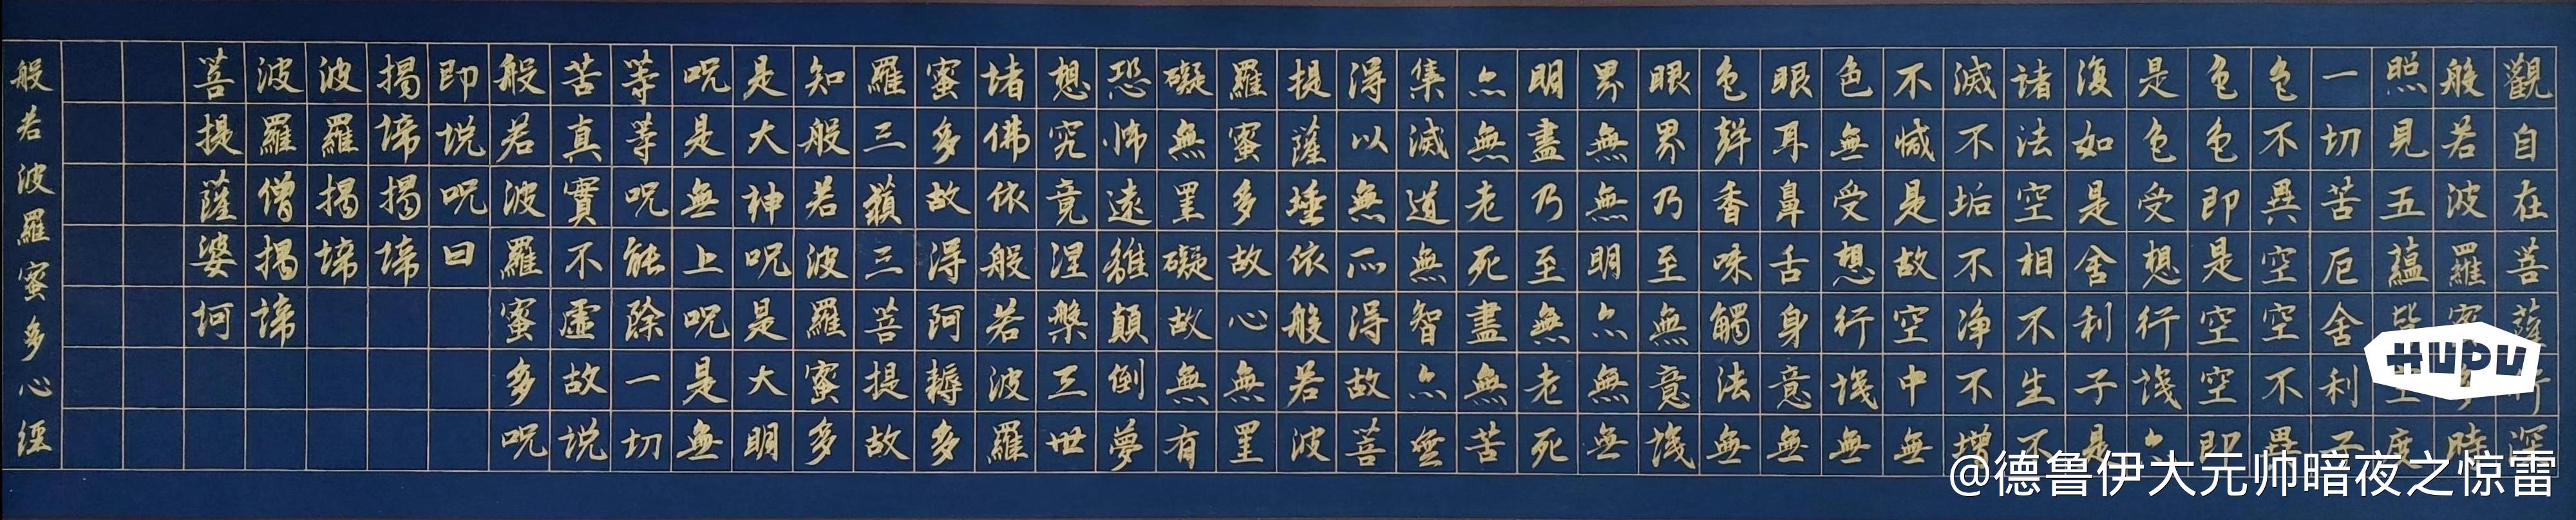 觀自在菩薩行深
般若波羅蜜多時
照見五蘊皆空度
一切苦厄舍利子
色不異空空不異
色色即是空空即
是色受想行識亦
復如是舍利子是
諸法空相不生不
滅不垢不净不增
不減是故空中無
色無受想行識無
眼耳鼻舌身意無
色聲香味觸法無
眼界乃至無意識
界無無明亦無無
明盡乃至無老死
亦無老死盡無苦
集滅道無智亦無
得以無所得故菩
提薩埵依般若波
羅蜜多故心無罣
礙無罣礙故無有
恐怖遠離顛倒夢
想究竟涅槃三世
諸佛依般若波羅
蜜多故得阿耨多
羅三藐三菩提故
知般若波羅蜜多
是大神呪是大明
呪是無上呪是無
等等呪能除一切
苦真實不虛故説
般若波羅蜜多呪
即説呪曰
揭諦揭諦
波羅揭諦
波羅僧揭諦
菩提薩婆訶
般若波羅蜜多心經
HUPU
@德鲁伊大元帅暗夜之惊雷